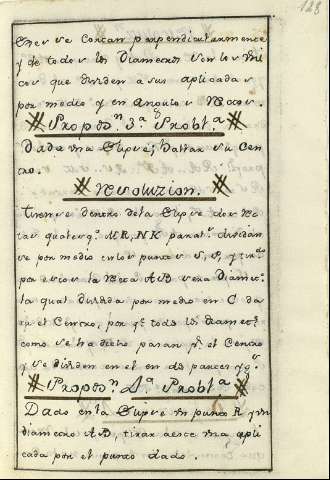 128
Ones se cortan perpendicularmente
y de todos los Diametros son los
que dividen a sus aplicadas
por medio y en Angulos Rectos.
Propos.n 3.a Probl.a
Dada una Elipse; hallar su Cen
tro.
Resoluzion.
Tirense dentro dela Elipse dos Re
tas qualesq.a MR, NK paral.s dividan
se por medio en los puntos S, S, y tirado
por estos la Recta AB sera Diametro
la qual dividida por medio en C da
rá el Centro, por q.e todos los Diamet.s
como se ha dicho pasan p.r el Centro
y se dividen en el en dos partes yg.s
Propos.n 4.a Probl.a
Dado en la Elipse un punto R y un
diametro AB, tirar a este una apli
cada por el punto dado.